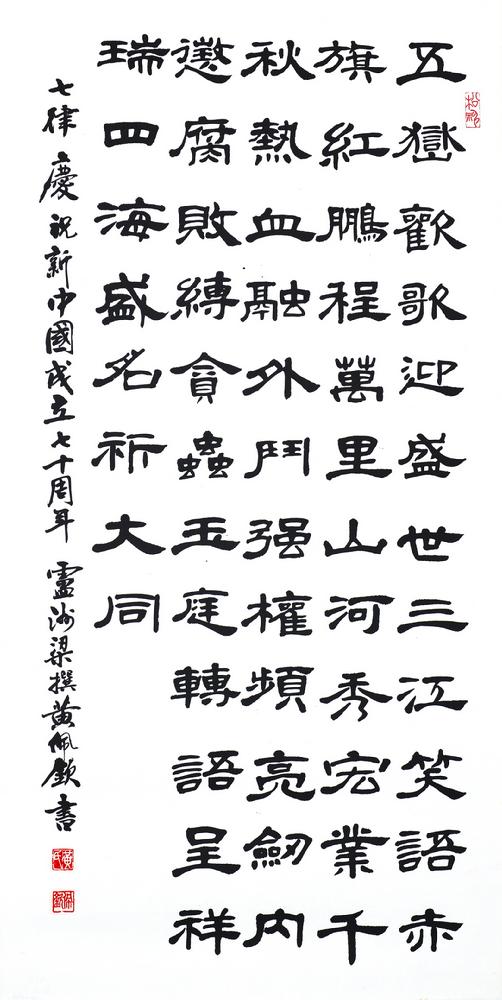 五嶽歡歌迎盛世三江笑語赤
旗紅鵬程萬里山河秀宏業千
秋熱血融外鬥强權頻亮劒內
懲腐敗縛貪蟲玉庭轉語呈祥
瑞四海盛名祈大同
七律 慶祝新中國成立七十周年 盧洲梁撰黃佩欽書